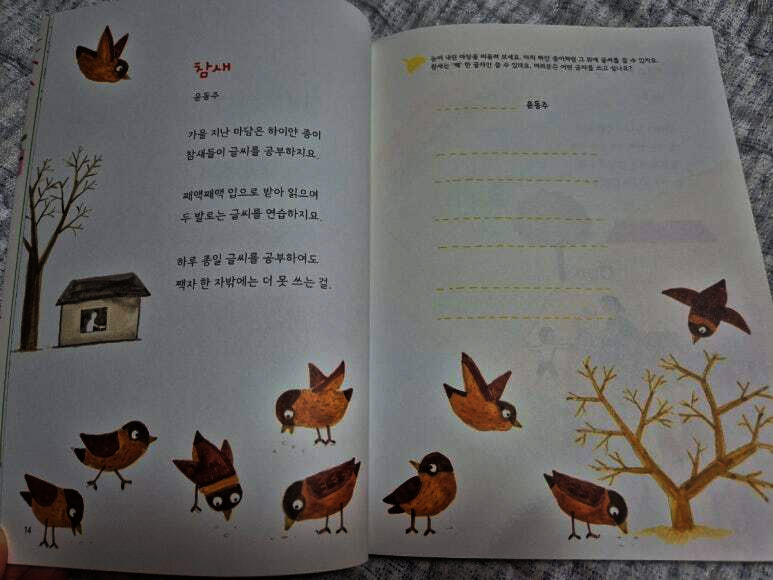 참새
윤동주
가을 지난 마당은 하이얀 종이
참새들이 글씨를 공부하지요.
째액째액 입으로 받아 읽으며
두 발로는 글씨를 연습하지요.
하루 종일 글씨를 공부하여도
짹자 한 자밖에는 더 못 쓰는 걸.
14
눈이 내린 마당을 떠올려 보세요. 마치 하얀 종이처럼 그 위에 글씨를 쓸 수 있지요.
참새는 '짹' 한 글자만 쓸 수 있대요. 여러분은 어떤 글자를 쓰고 싶나요?
윤동주